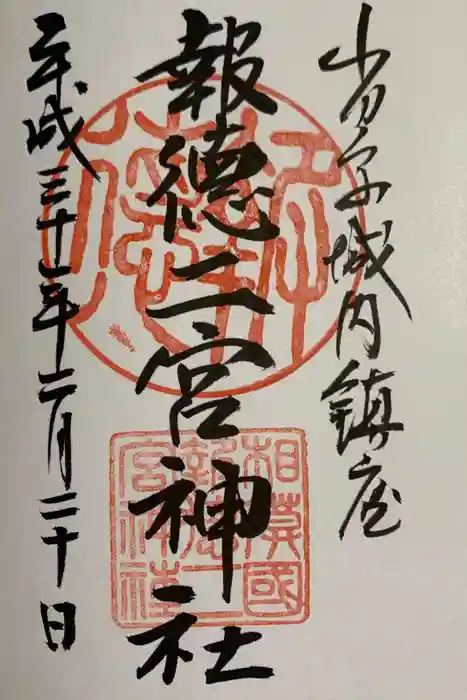 小田原城内鎮座
報徳二宮神社
平成三十一年二月二十日
相模國
報徳二
宮神社